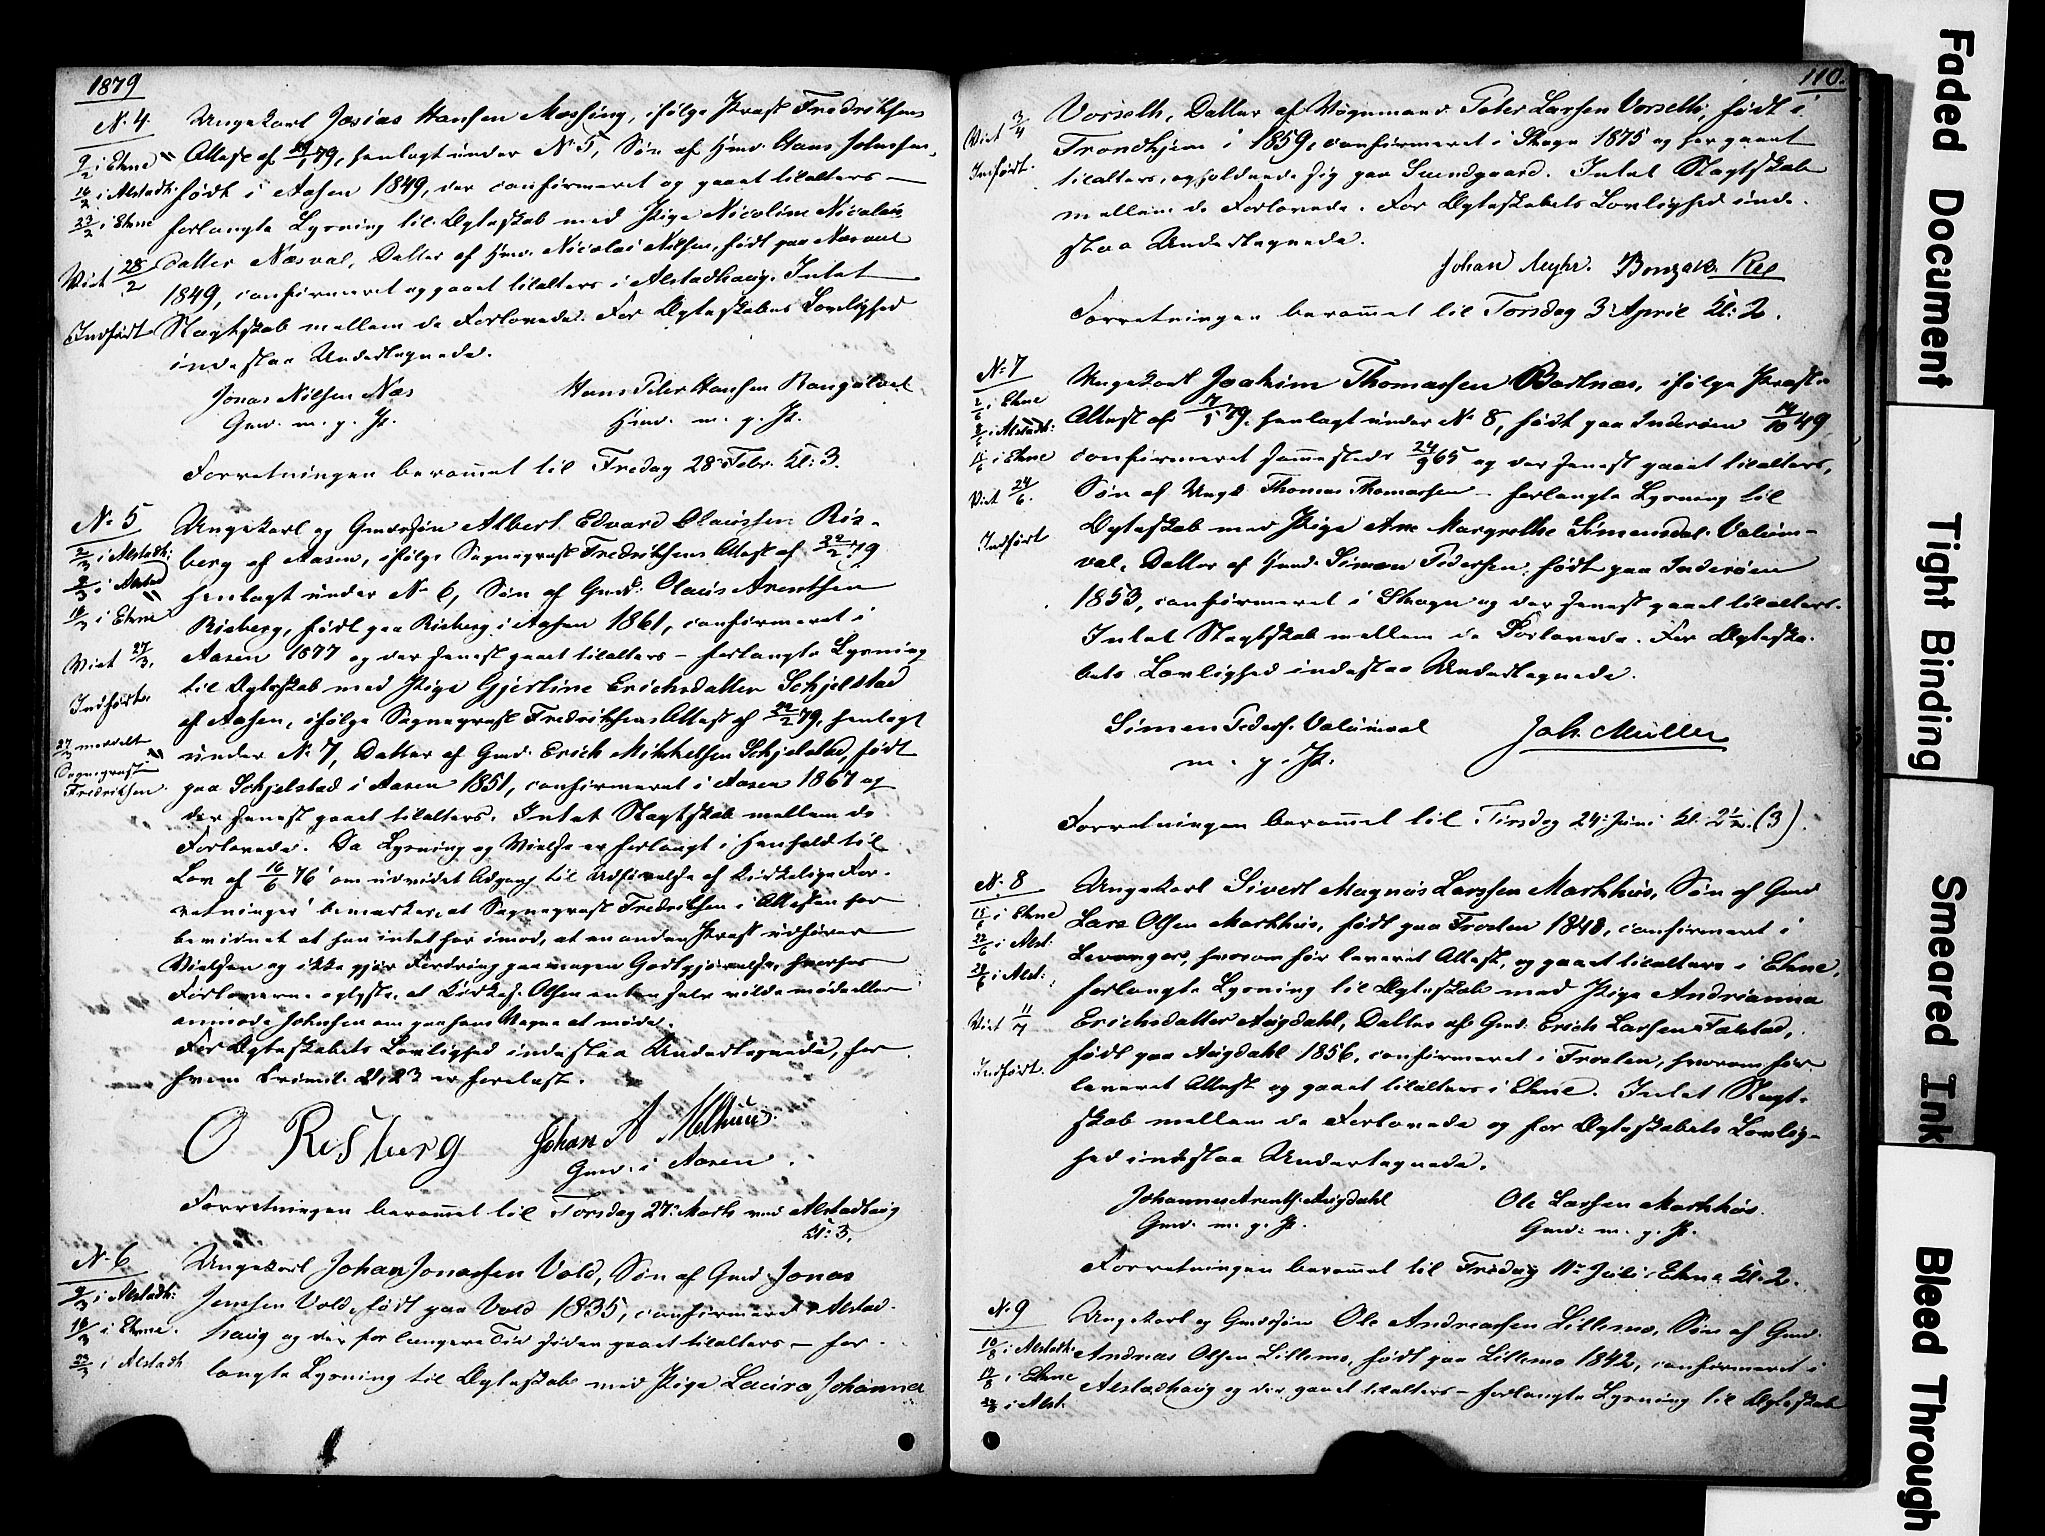 1879
No 4
Ungekarl Josias Hansen Mossing, ifølge Præst Fredriksens
2/2 i Ekne
Attest af 79, henlagt under No 5, Søn af Hmd. Hans Johnsen,
16/2 i Alstadh.
født i Aasen 1849, der confirmeret og gaaet tilalters –
23/2 i Ekne
forlangte Lysning til Ægteskab med Pige Nicoline Nicolai
Viet 28/2
datter Næsval, Datter af Hmd. Nicolai Nilsen, født paa Næsval
1849, confirmeret og gaaet tilalters i Alstadhaug. Intet
Indført
Slagtskab mellem de Forlovede. For Ægteskabets Lovlighed
indestaa Undertegnede.
Jonas Nilsen Næs Hans Peter Hansen
Gmd. m. p. P. Hmd. m. p. P.
Forretningen berammet til Fredag 28de Febr. Kl: 3.
No 5
Ungekarl og Gmdssøn Albert Edvard Olaussen Ris-
2/3 i Alstadh:
berg af Aasen, ifølge Sognepræst Fredriksens Attest af 22/2 79
9/3 i Alstad
henlagt under No 6, Søn af Gmd: Olaus Arentsen
16/3 i Ekne
Risberg, født paa Risberg i Aasen 1861, confirmeret i
Viet 27/3.
Aasen 1877 og der senest gaaet tilalters – forlangte Lysning
Indført.
til Ægteskab med Pige Gjertine Erichsdatter Schjelstad
af Aasen, ifølge Sognepræst Fredriksens Attest af 22/2 79, henlagt
27/3 meddelt
under No 7, Datter af Gmd. Erich Mikkelsen Schjelstad, født
Sognepræst
Fredriksen
paa Schjelstad i Aasen 1851, confirmeret i Aasen 1867 og
der senest gaaet tilalters. Intet Slagtskab mellem de
Forlovede. Da Lysning og Vielse er forlangt i Henhold til
Lov af 16/6 76 "om udvidet Adgang til Udførelse af kirkelige For-
retninger" bemærkes, at Sognepræst Fredriksen i Attesten har
bevidnet at han intet har imod, at en anden Præst udfører
Vielsen og ikke gjør Fordring paa nogen Godtgjørelse, hvorhos
Forloverne oplyste, at Kirkes. Olsen enten selv vilde møde eller
anmode Johnsen om paa hans Vegne at møde.
For Ægteskabets Lovlighed indestaa Undertegnede, for
hvem Criml. 21, 23 er forelæst.
O Risberg Johan A Melhuus
Gmd. i Aasen.
Forretningen berammet til Torsdag 27de Marts ved Alstadhaug
Kl: 3.
No 6
Ungekarl Johan Jonassen Vold, Søn af Gmd Jonas
9/3 i Alstadh:
Jensen Vold, født paa Vold 1835, confirmeret i Alstad-
16/3 i Ekne.
haug og der for længere Tid siden gaaet tilalters – for-
23/3 i Alstadh
langte Lysning til Ægteskab med Pige Laura Johanna
110.
Viet 3/4
Vorseth, Datter af Vognmand Peter Larsen Vorseth, født i
Trondhjem i 1859, confirmeret i Skogn 1875 og her gaaet
Indført.
tilalters, opholdende sig paa Sundgaard. Intet Slagtskab
mellem de Forlovede. For Ægteskabets Lovlighed inde-
staa Undertegnede.
Johan Myhr.
Forretningen berammet til Torsdag 3de April Kl: 2.
No 7
Ungekarl Joakim Thomassen Bartnæs, ifølge Præste-
2/6 i Ekne
Attest af 17/5 79, henlagt under No 8, født paa Inderøen 14/10 49
8/6 i Alstadh:
15/6 i Ekne
confirmeret sammesteds 24/9 65 og der senest gaaet tilalters,
Viet 24/6.
Søn af Ungk. Thomas Thomassen – forlangte Lysning til
Indført
Ægteskab med Pige Ane Margrethe Simensdat. Valum-
val, Datter af Hmd. Simon Pedersen, født paa Inderøen
1853, confirmeret i Skogn og der senest gaaet tilalters.
Intet Slagtskab mellem de Forlovede. For Ægteska-
bets Lovlighed indestaa Undertegnede.
Simen Peders. Valumval Joh. Müller
m. p. P.
Forretningen berammet til Tirsdag 24de Juni Kl. 2½ (3).
No 8
Ungekarl Sivert Magnus Larsen Markhus, Søn af Gmd
15/6 i Ekne
Lars Olsen Markhus, født paa Frosten 1848, confirmeret i
22/6 i Alst:
Levanger, hvorom før leveret Attest, og gaaet tilalters i Ekne,
29/6 i Alst:
forlangte Lysning til Ægteskab med Pige Andrianna
Viet 11/7
Erichsdatter Augdahl, Datter af Gmd. Erich Larsen Talstad,
født paa Augdahl 1856, confirmeret i Frosten, hvorom før
Indført.
leveret Attest og gaaet tilalters i Ekne. Intet Slagt-
skab mellem de Forlovede og for Ægteskabets Lovlig-
hed indestaa Undertegnede.
Johannes Arents. Augdahl Ole Larsen Markhus.
Gmd. m. p. P. Gmd: m. p. P.
Forretningen berammet til Fredag 11te Juli i Ekne Kl. 2.
No 9
Ungekarl og Gmdssøn Ole Andreassen Lillemo, Søn af Gmd.
10/8 i Alstadh:
Andreas Olsen Lillemo, født paa Lillemo 1842, confirmeret i
17/8 i Ekne
Alstadhaug og der gaaet tilalters – forlangte Lysning til Ægteskab
24/8 i Alst.
Faded Document
Tight Binding
Smeared Ink
Bleed Through